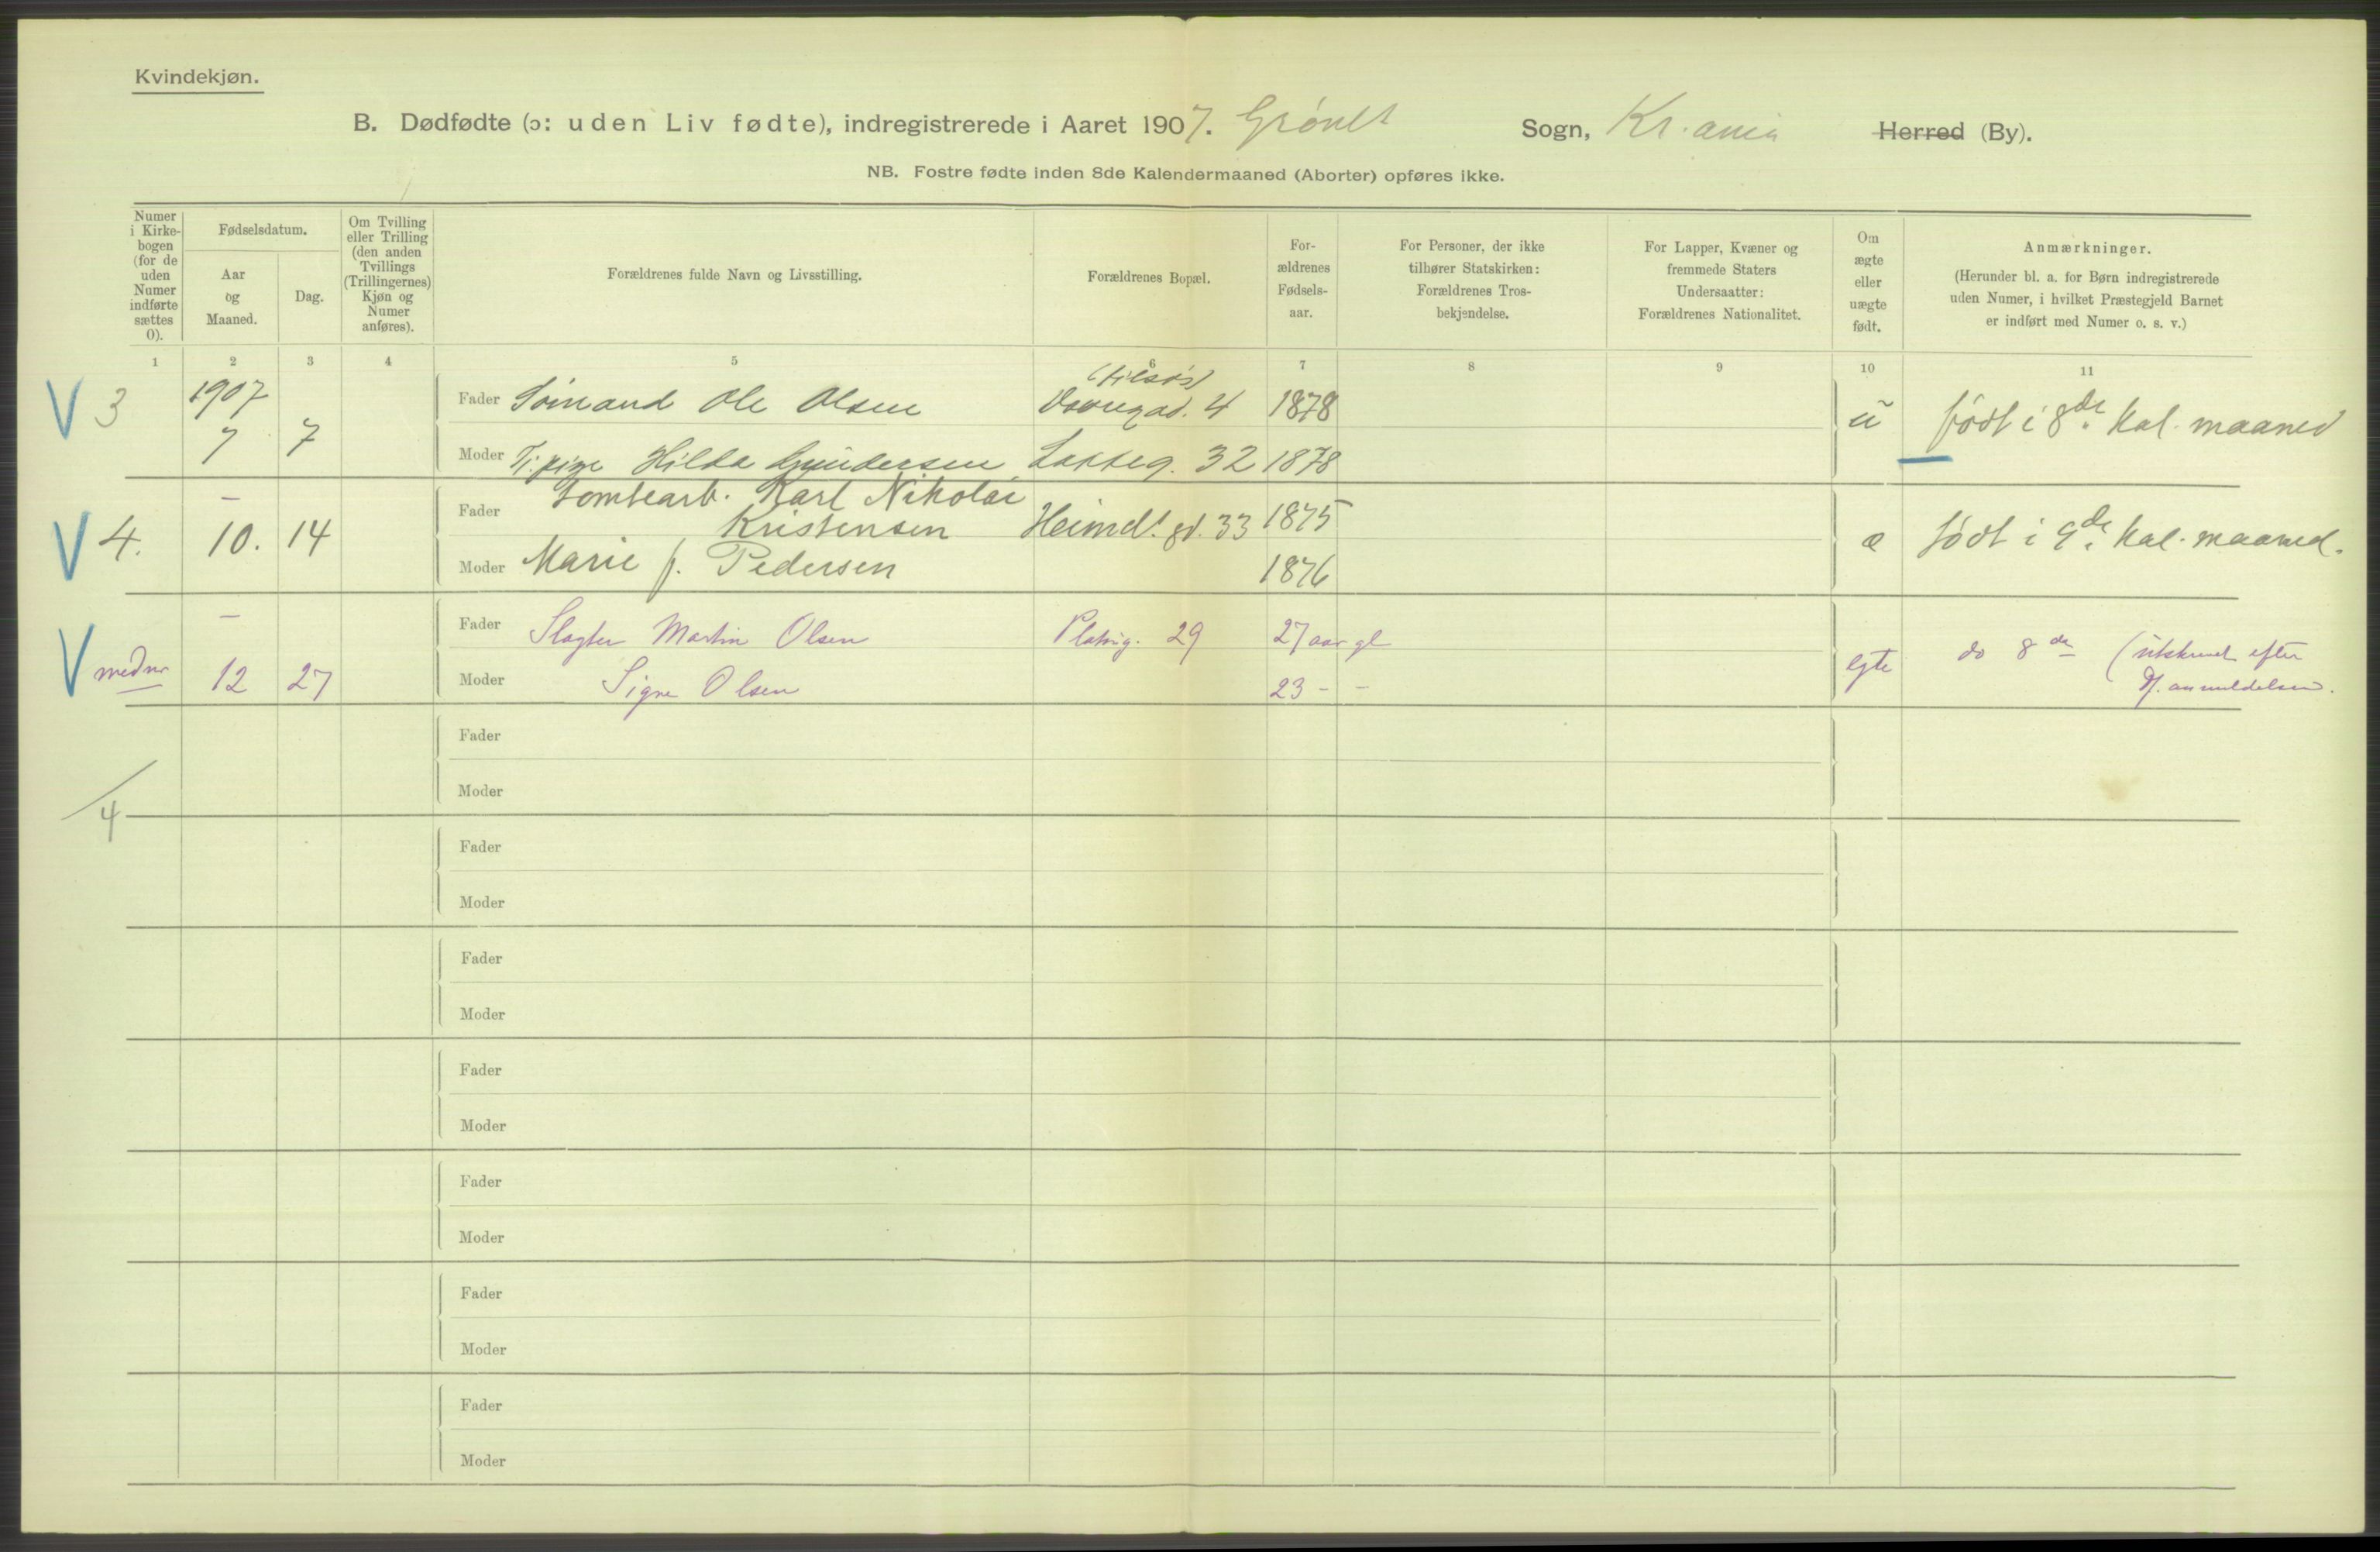 Kvindekjøn.
B. Dødfødte (ɔ: uden Liv fødte), indregistrerede i Aaret 1907. Grønl. Sogn, Kr.ania Herred (By).
NB. Fostre fødte inden 8de Kalendermaaned (Aborter) opføres ikke.
Numer i Kirke-bogen (for de uden Numer indførte sættes 0).
Fødselsdatum.
Aar og Maaned.
Dag.
Om Tvilling eller Trilling (den anden Tvillings (Trillingernes) Kjøn og Numer anføres).
Forældrenes fulde Navn og Livsstilling.
Forældrenes Bopæl.
For-ældrenes Fødsels-aar.
For Personer, der ikke tilhører Statskirken: Forældrenes Tros-bekjendelse.
For Lapper, Kvæner og fremmede Staters Undersaatter: Forældrenes Nationalitet.
Om ægte eller uægte født.
Anmærkninger.
(Herunder bl. a. for Børn indregistrerede uden Numer, i hvilket Præstegjeld Barnet er indført med Numer o. s. v.)
1 2 3 4 5 6 7 8 9 10 11
(tilsøs)
V 3 1907 7 7 Fader Sømand Ole Olsen 4 1878 u født i 8de Kal. maaned
Moder Tj.pige Hilda Gundersen Lakkeg. 32 1878
V 4. – 10. 14 Fader Tomtearb. Karl Nikolai
Kristensen Heimd.gd. 33 1875 æ født i 9de Kal. maaned.
Moder Marie f. Pedersen 1876
V – 12 27 Fader Slagter Martin Olsen Platoug. 29 27 aar gl egte do 8de (utskrevet efter
Moder Signe Olsen 23 – – Dj. anmeldelsen.
Fader
Moder
4
Fader
Moder
Fader
Moder
Fader
Moder
Fader
Moder
Fader
Moder
Fader
Moder